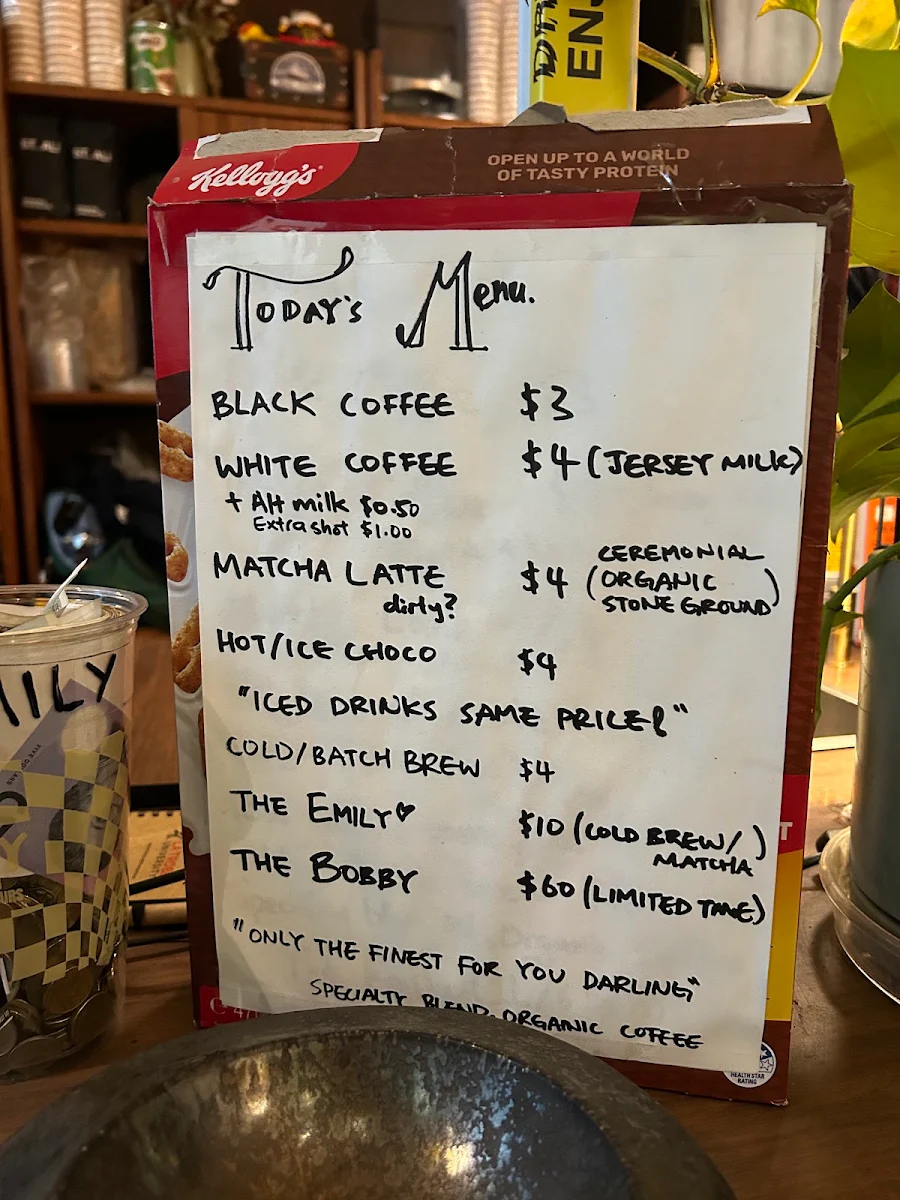 DR
ENJ
ST. ALi
ST. ALi
Kellogg's
OPEN UP TO A WORLD
OF TASTY PROTEIN
TODAY'S MENU.
BLACK COFFEE $3
WHITE COFFEE $4 (JERSEY MILK)
+ Alt milk $0.50
Extra shot $1.00
MATCHA LATTE $4 (CEREMONIAL
ORGANIC
STONE GROUND)
dirty?
HOT/ICE CHOCO $4
"ICED DRINKS SAME PRICE!"
COLD/BATCH BREW $4
THE EMILY♥ $10 (COLD BREW/
MATCHA)
THE BOBBY $60 (LIMITED TIME)
"ONLY THE FINEST FOR YOU DARLING"
SPECIALTY BLEND ORGANIC COFFEE
MILY
HEALTH STAR
RATING